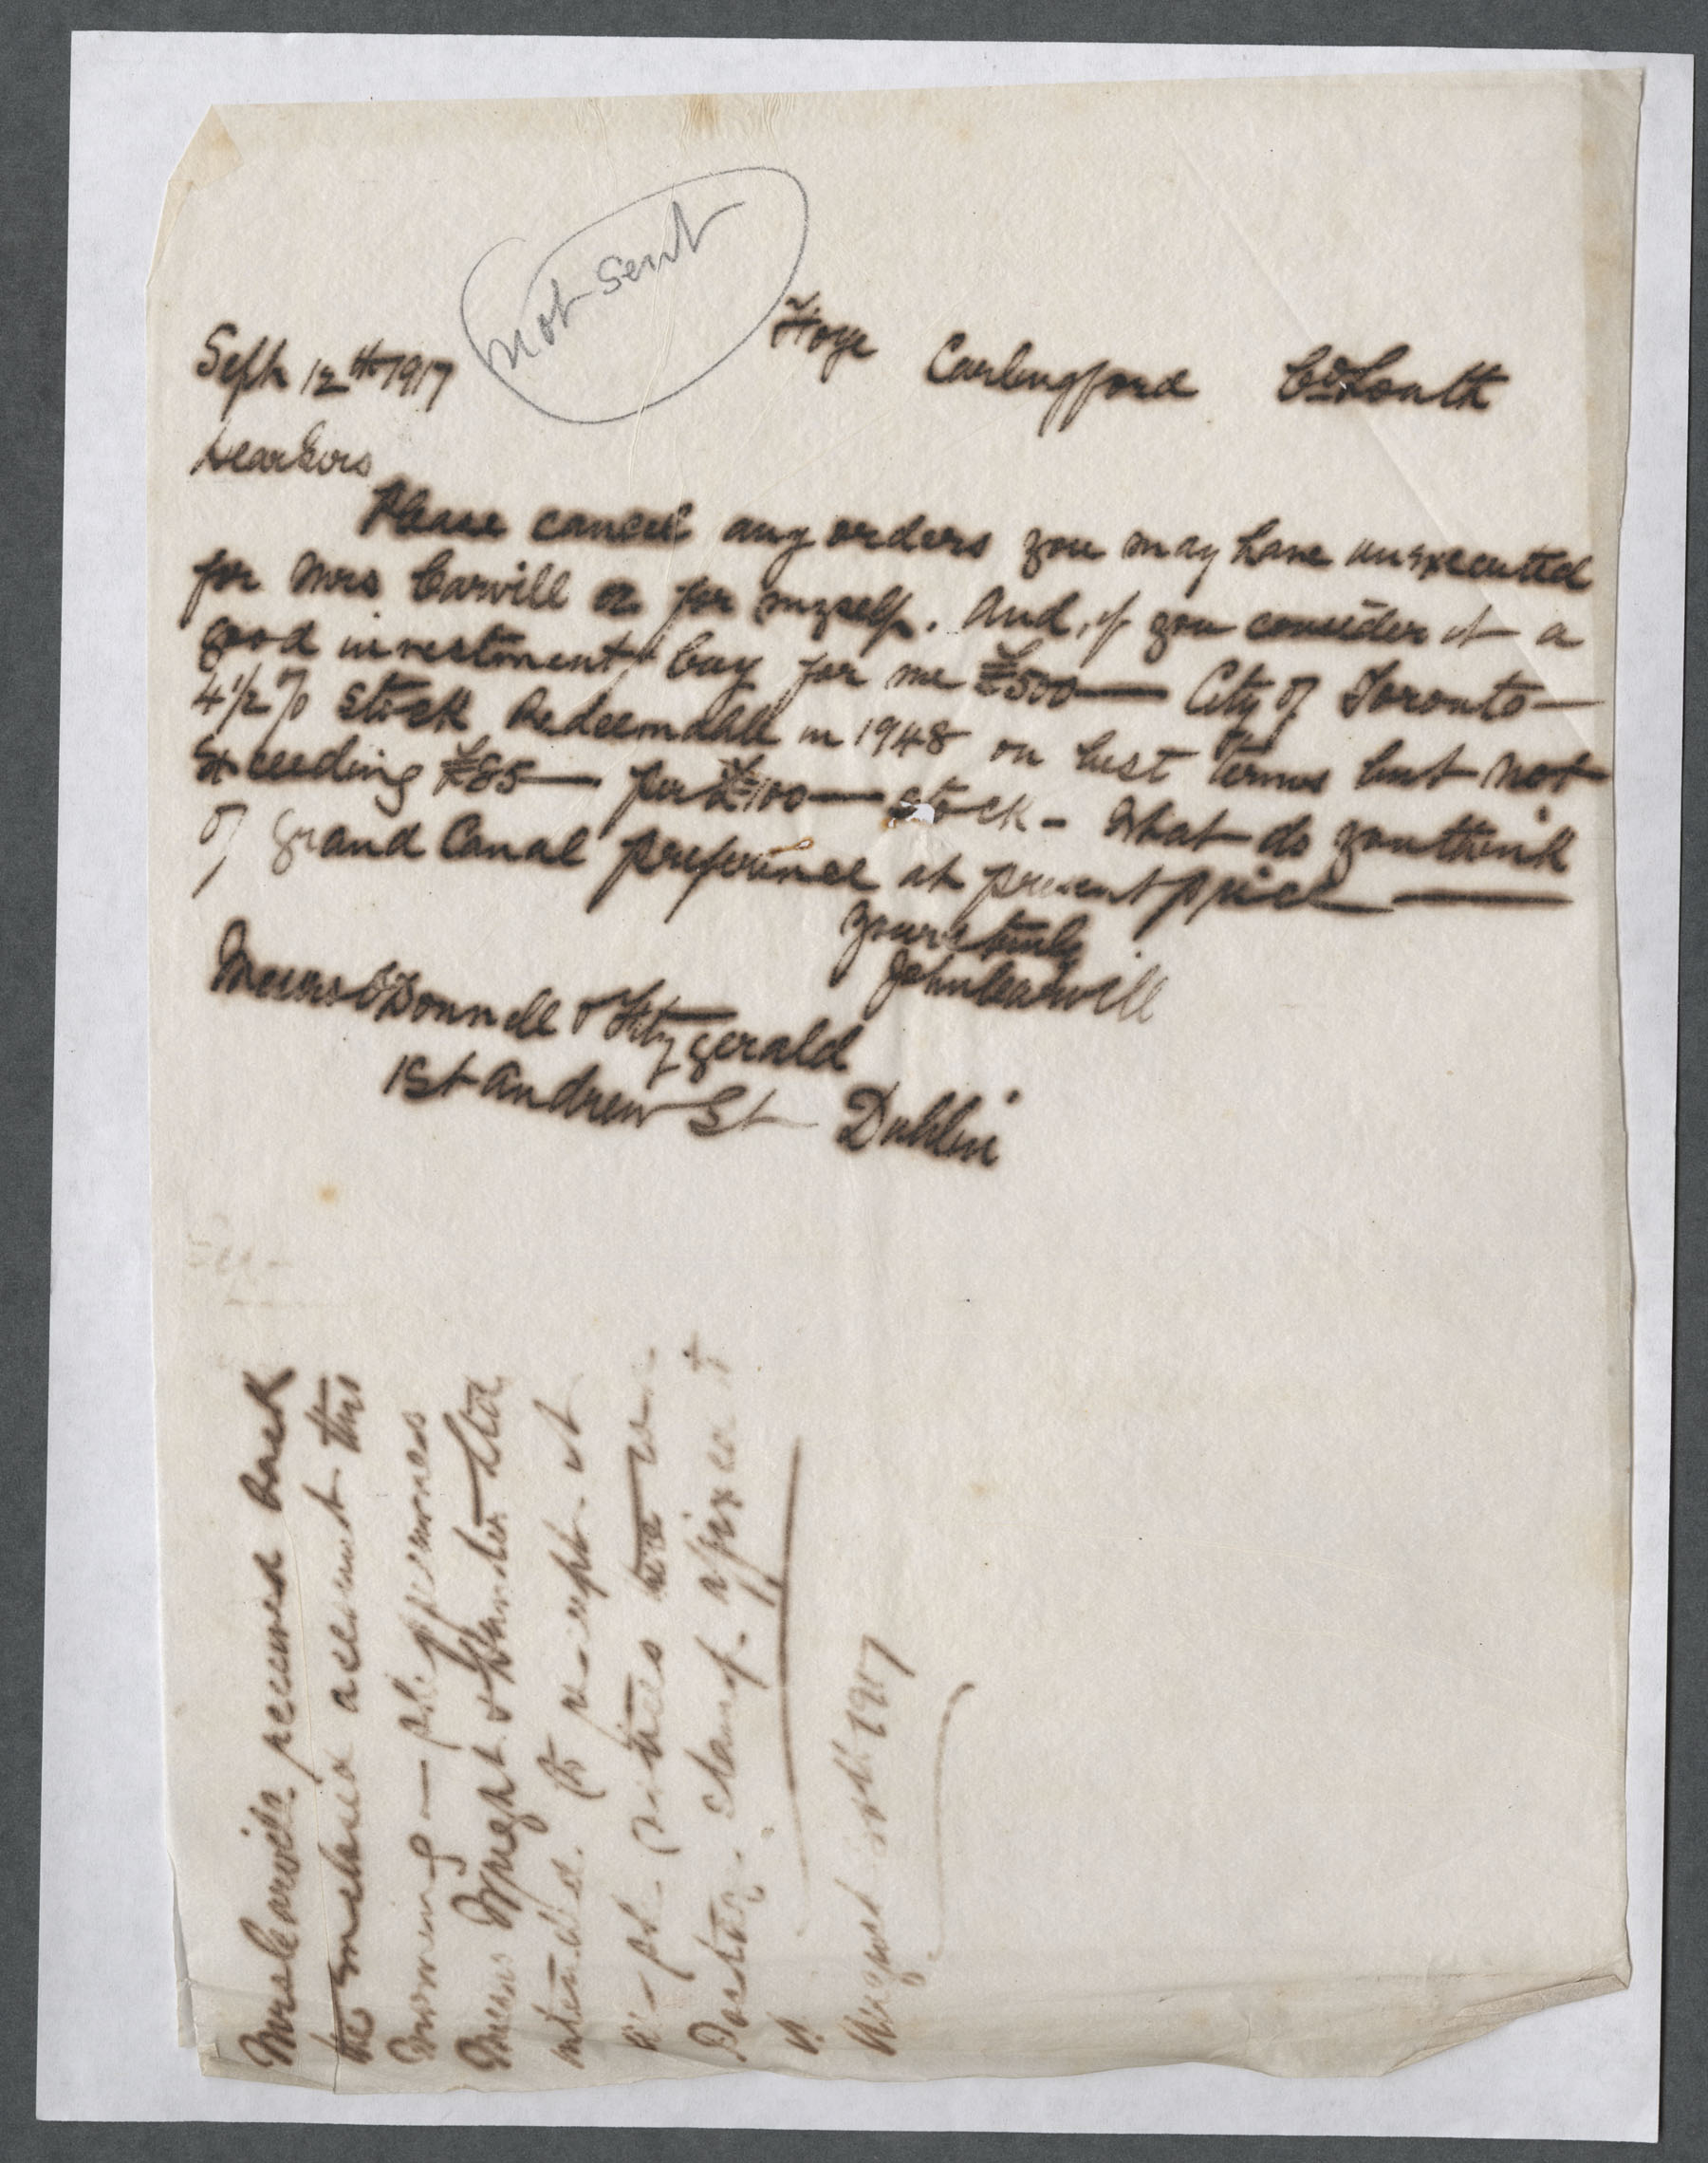 not sent
Sept 12th 1917
Carlingford Co Louth
Dear Sirs
Please cancel any orders you may have unexecuted
for Mrs Carvill or for myself. And, if you consider it a
good investment buy for me £500 — City of Toronto —
4 1/2 % Stock Redeemable in 1948 on best terms but not
Exceeding £85 — per £100 — stock - What do you think
of Grand Canal preference at present price —
Yours truly
John Carvill
Messrs O'Donnell & Fitzgerald
1 St Andrew St Dublin
Mrs Carvill received back
the Enclosed account this
morning —
Messrs Speight &
intended. to receipt it
stamp. affixed
August 1917